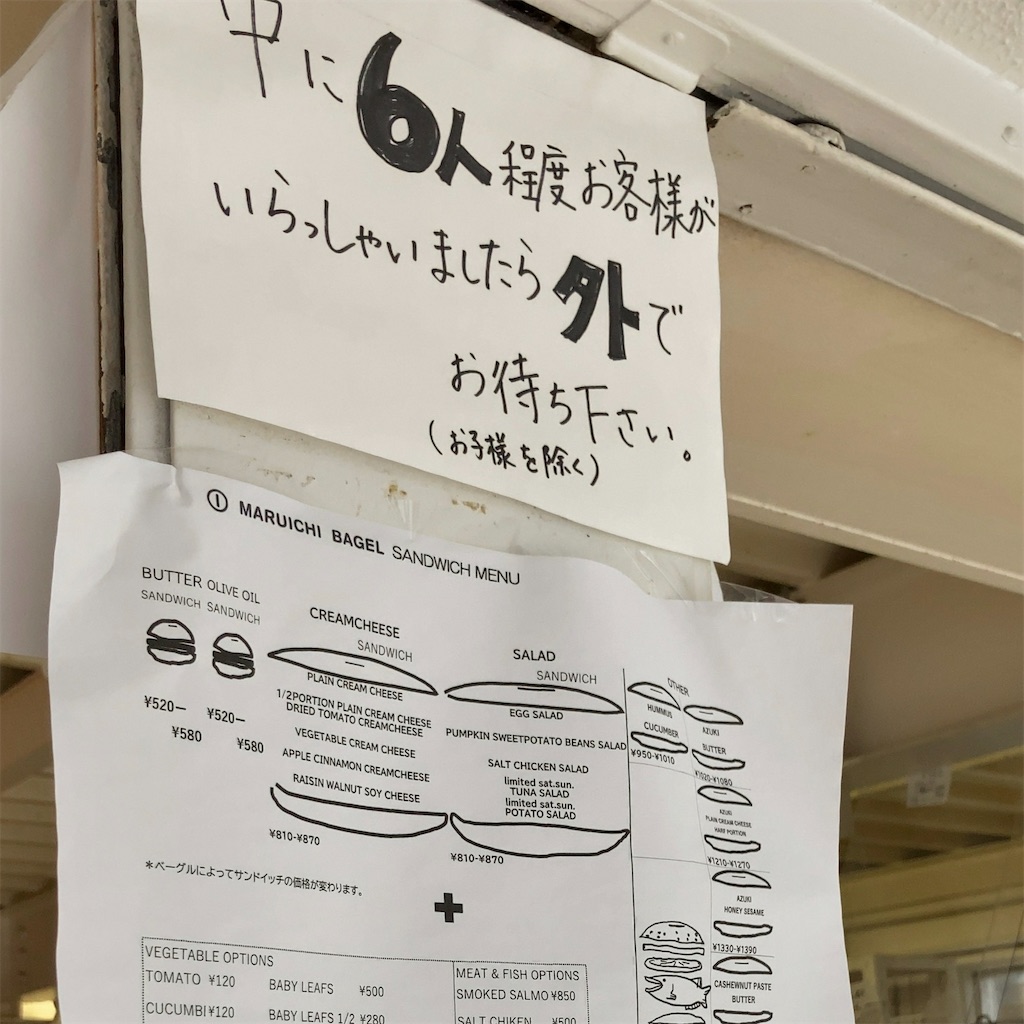 中に6人程度お客様が
いらっしゃいましたら外で
お待ち下さい。
(お子様を除く)
MARUICHI BAGEL SANDWICH MENU
BUTTER OLIVE OIL
SANDWICH SANDWICH
¥520— ¥520—
¥580 ¥580
CREAMCHEESE
SANDWICH
PLAIN CREAM CHEESE
1/2PORTION PLAIN CREAM CHEESE
DRIED TOMATO CREAMCHEESE
VEGETABLE CREAM CHEESE
APPLE CINNAMON CREAMCHEESE
RAISIN WALNUT SOY CHEESE
¥810-¥870
SALAD
SANDWICH
EGG SALAD
PUMPKIN SWEETPOTATO BEANS SALAD
SALT CHICKEN SALAD
limited sat.sun.
TUNA SALAD
limited sat.sun.
POTATO SALAD
¥810-¥870
OTHER
HUMMUS
CUCUMBER
¥950-¥1010
AZUKI
BUTTER
¥1020-¥1080
AZUKI
PLAIN CREAM CHEESE
HARF PORTION
¥1210-¥1270
AZUKI
HONEY SESAME
¥1330-¥1390
CASHEWNUT PASTE
BUTTER
*ベーグルによってサンドイッチの価格が変わります。
+
VEGETABLE OPTIONS
TOMATO ¥120 BABY LEAFS ¥500
CUCUMBI¥120 BABY LEAFS 1/2 ¥280
MEAT & FISH OPTIONS
SMOKED SALMO¥850
SALT CHIKEN ¥500